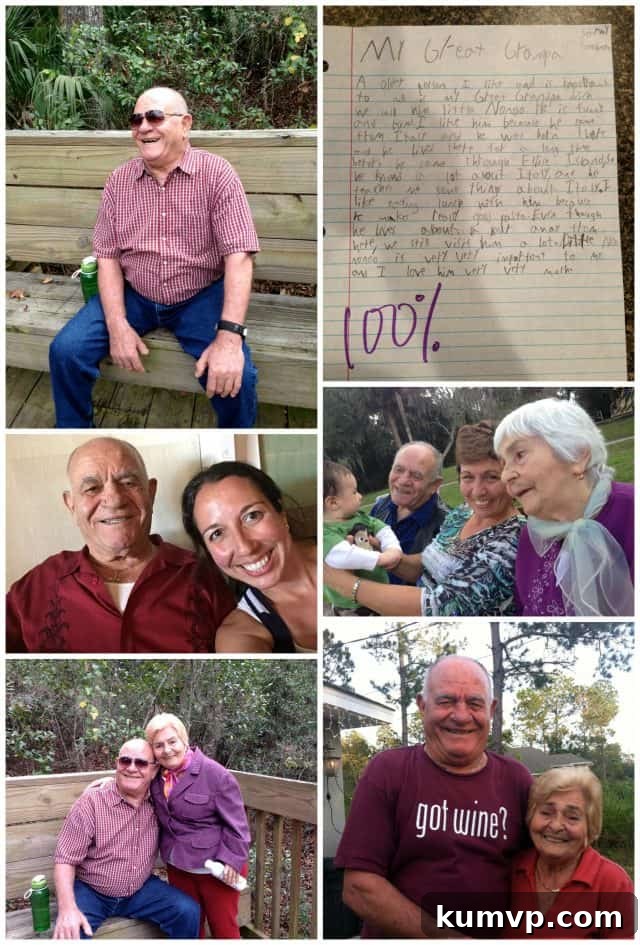 My Great Granpa
A older person I like and is important
to me is my Great Grandpa which
we call him Little Nonno He is
and kind I like him because he came
from Italy and he was born there
and he lived there for a long time
before he came through Ellis Island
he knows a lot about Italy and he
me some thing about Italy I
like eating lunch with him because
he make good pasta. Even though
he lives about a half away from
here, we still visit him a lot. Little
nonno is very very important to me
and I love him very very
100%
got wine?
kumvp.com